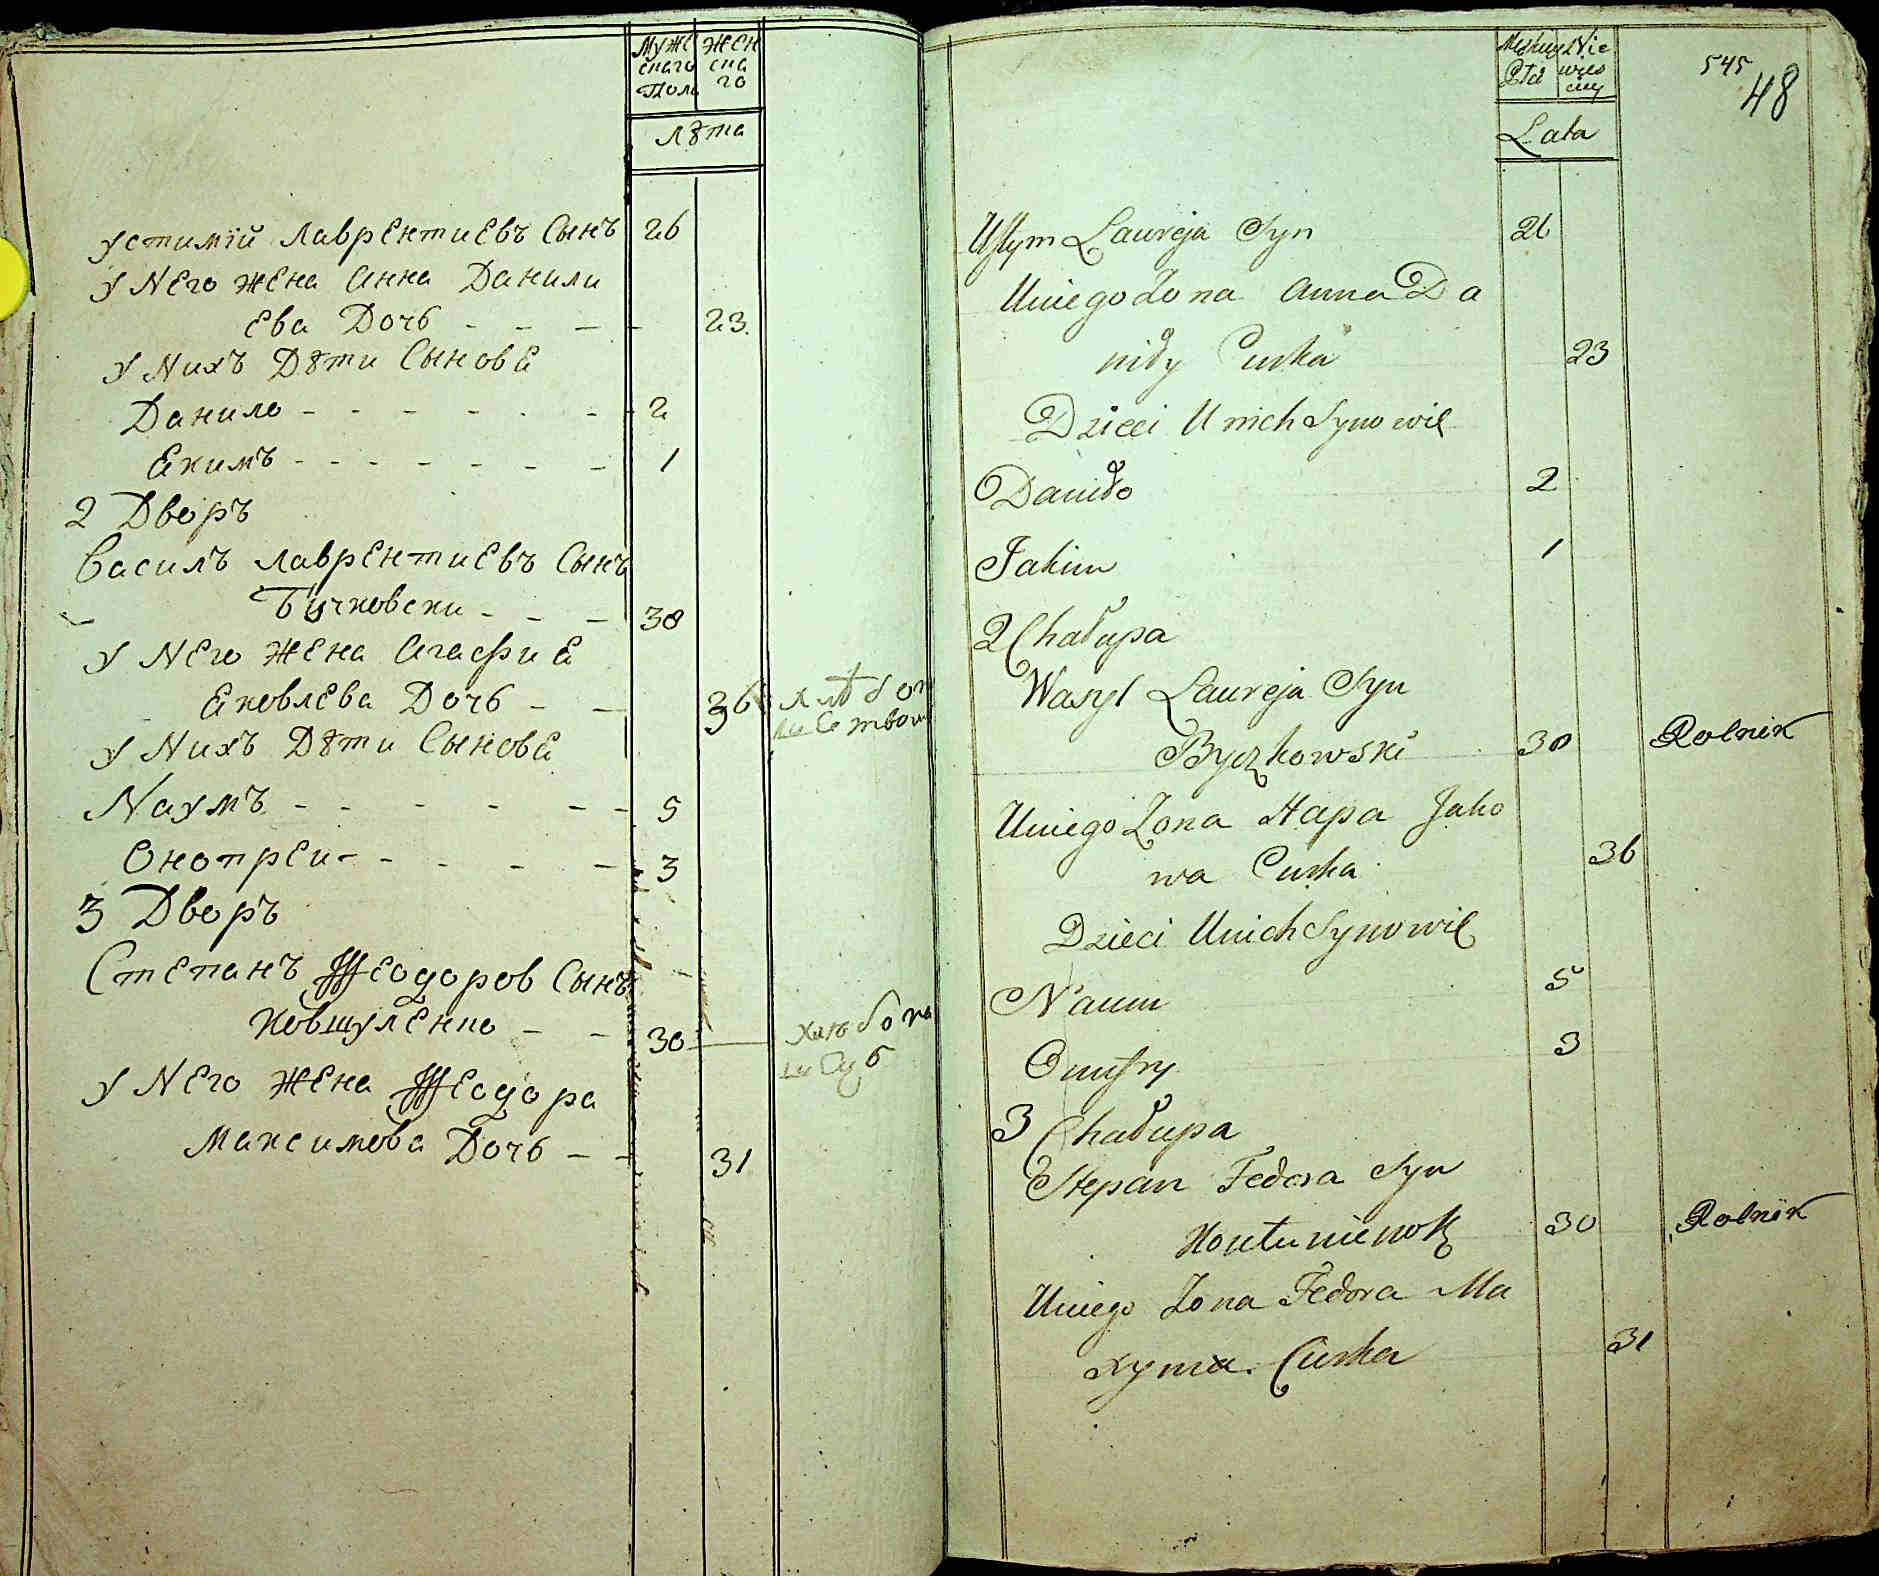 Муже Жен
скаго ска
Полу го
Лѣта
Устимїй Лаврентиевъ Сынъ 26
У Него жена Анна Данили
ева Дочь - - - - 23.
У Нихъ Дѣти Сыновѣ
Данило - - - - - - 2
Екимъ - - - - - - - 1
2 Дворъ
Василъ Лаврентиевъ Сынъ
Бичковски - - - 38
У Него жена Агафиѣ
Яковлева Дочь - - 36
У Нихъ Дѣти Сыновѣ
Наумъ - - - - - - 5
Онопреи - - - - - 3
3 Дворъ
Степанъ Феодоров Сынъ
Ковшуленко - - 30
У Него жена Феодора
Максимова Дочь - - 31
545
48
Lata
Ustym Laureja Syn 26
Uniego Zona Anna Da
niły Curka 23
Dzieci Unich Synowie
Daniło 2
Jakim 1
2 Chałupa
Wasyl Laureja Syn
Byczkowski 38 Rolnik
Uniego Zona Hapa Jako
wa Curka 36
Dzieci Unich Synowie
Naum 5
Onufry 3
3 Chałupa
Stepan Fedora Syn
30 Rolnik
Uniego Zona Fedora Ma
xyma Curka 31